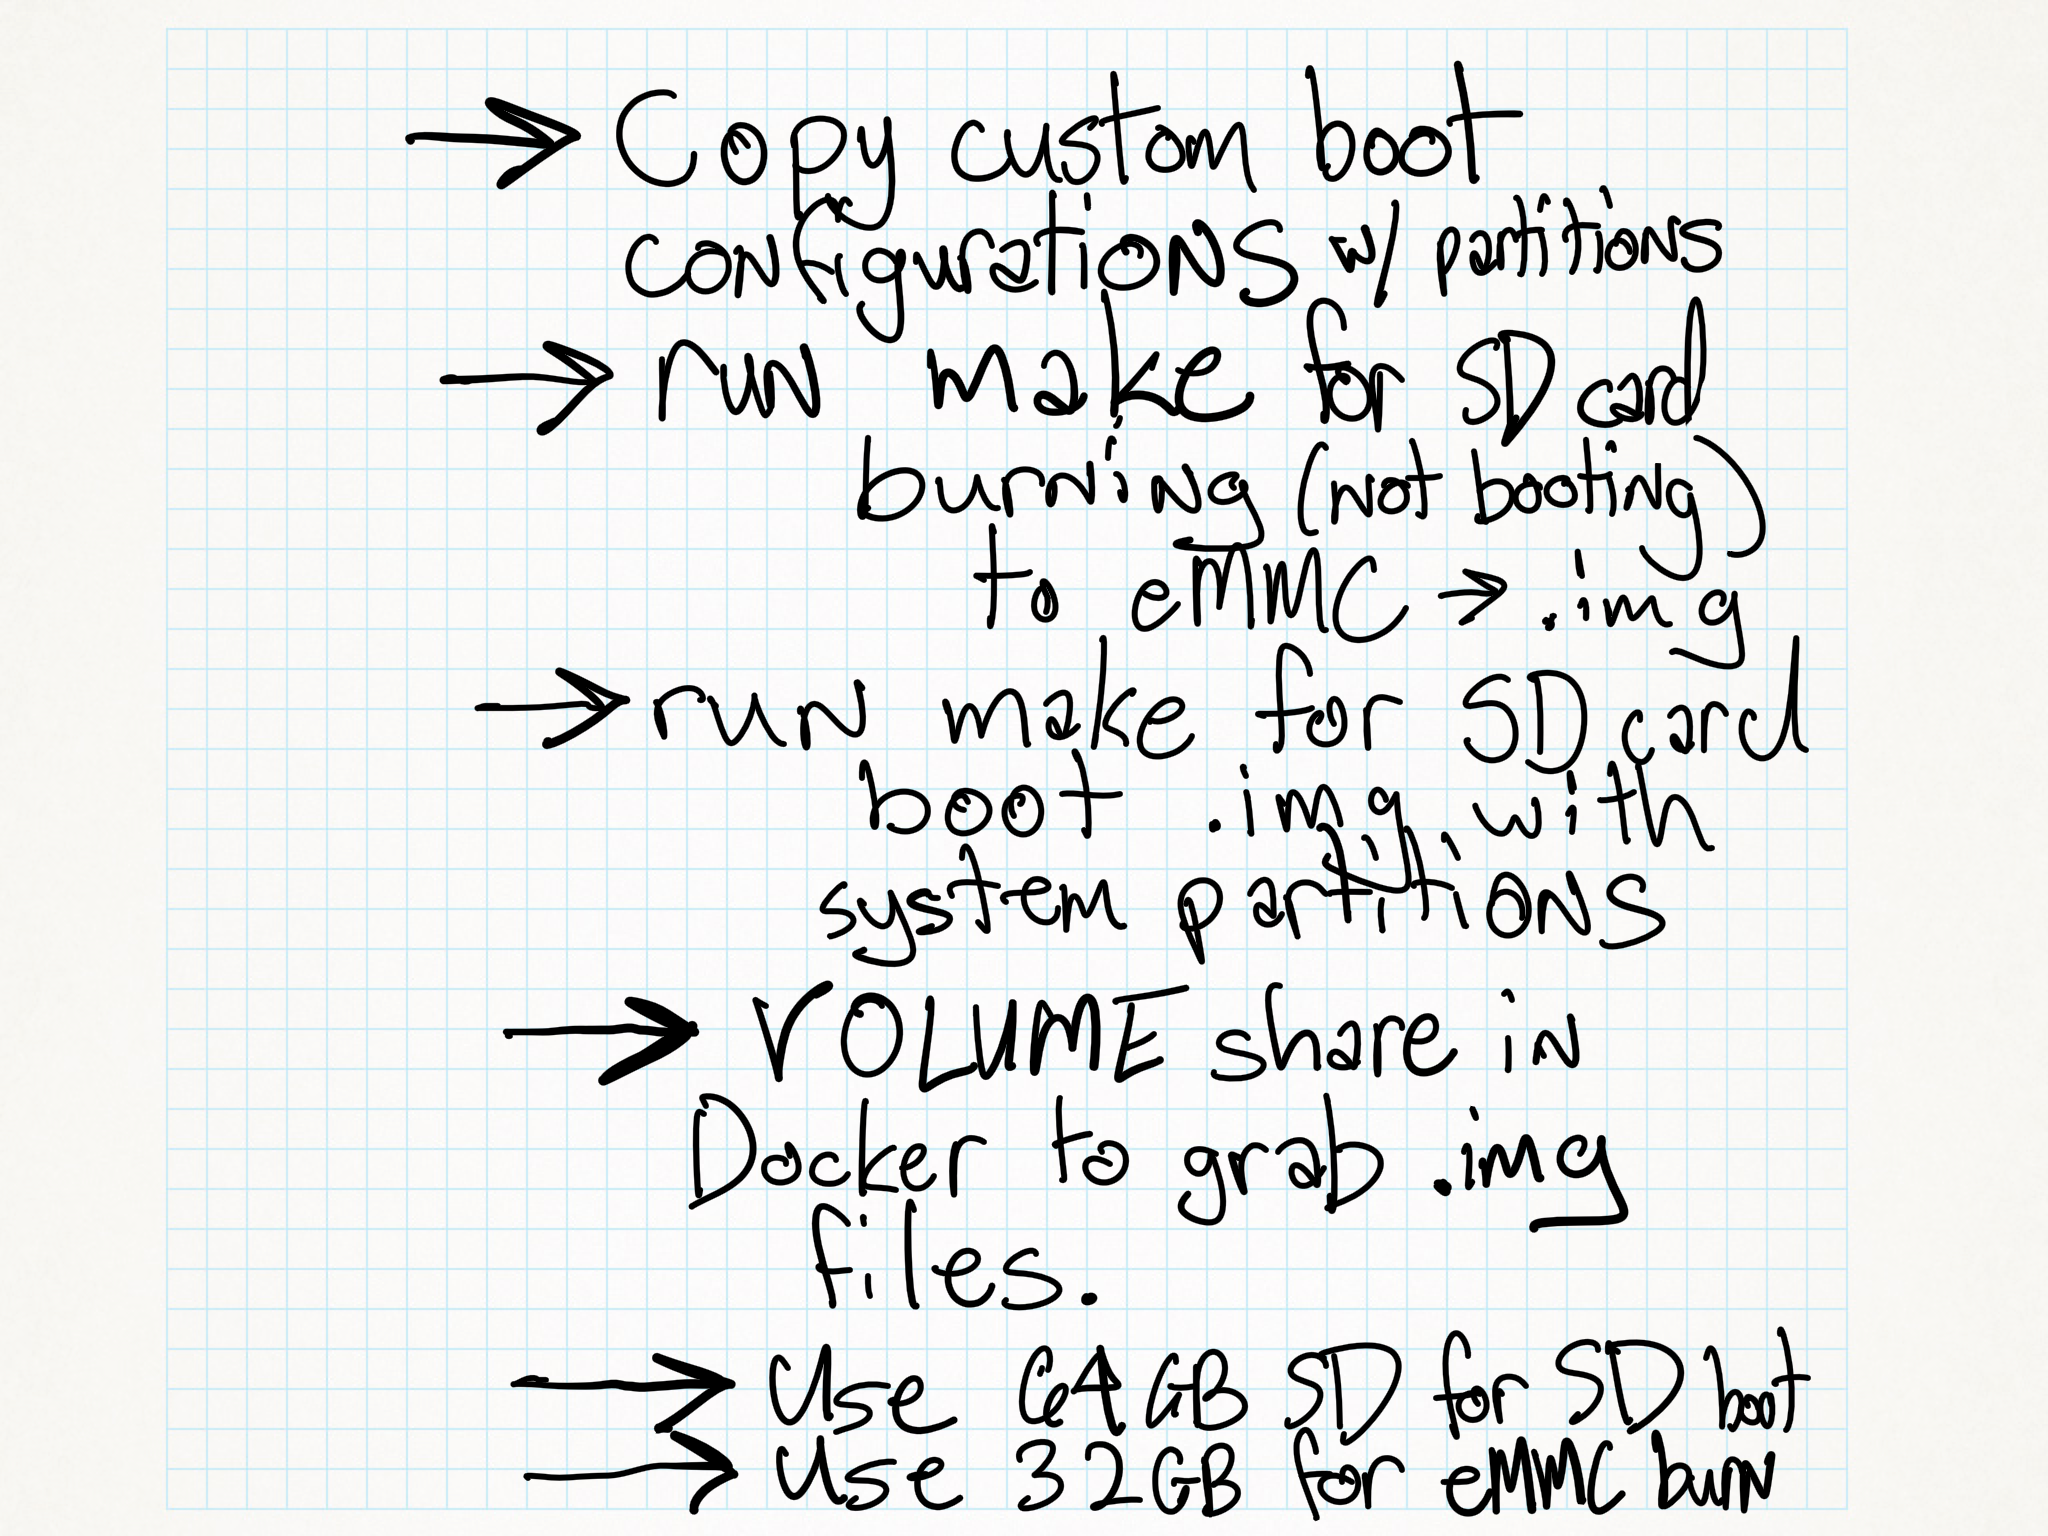 → Copy custom boot
configurations w/ partitions
→ run make for SD card
burning (not booting)
to eMMC → .img
→ run make for SD card
boot .img with
system partitions
→ VOLUME share in
Docker to grab .img
files.
→ Use 64GB SD for SD boot
→ Use 32GB for eMMC burn